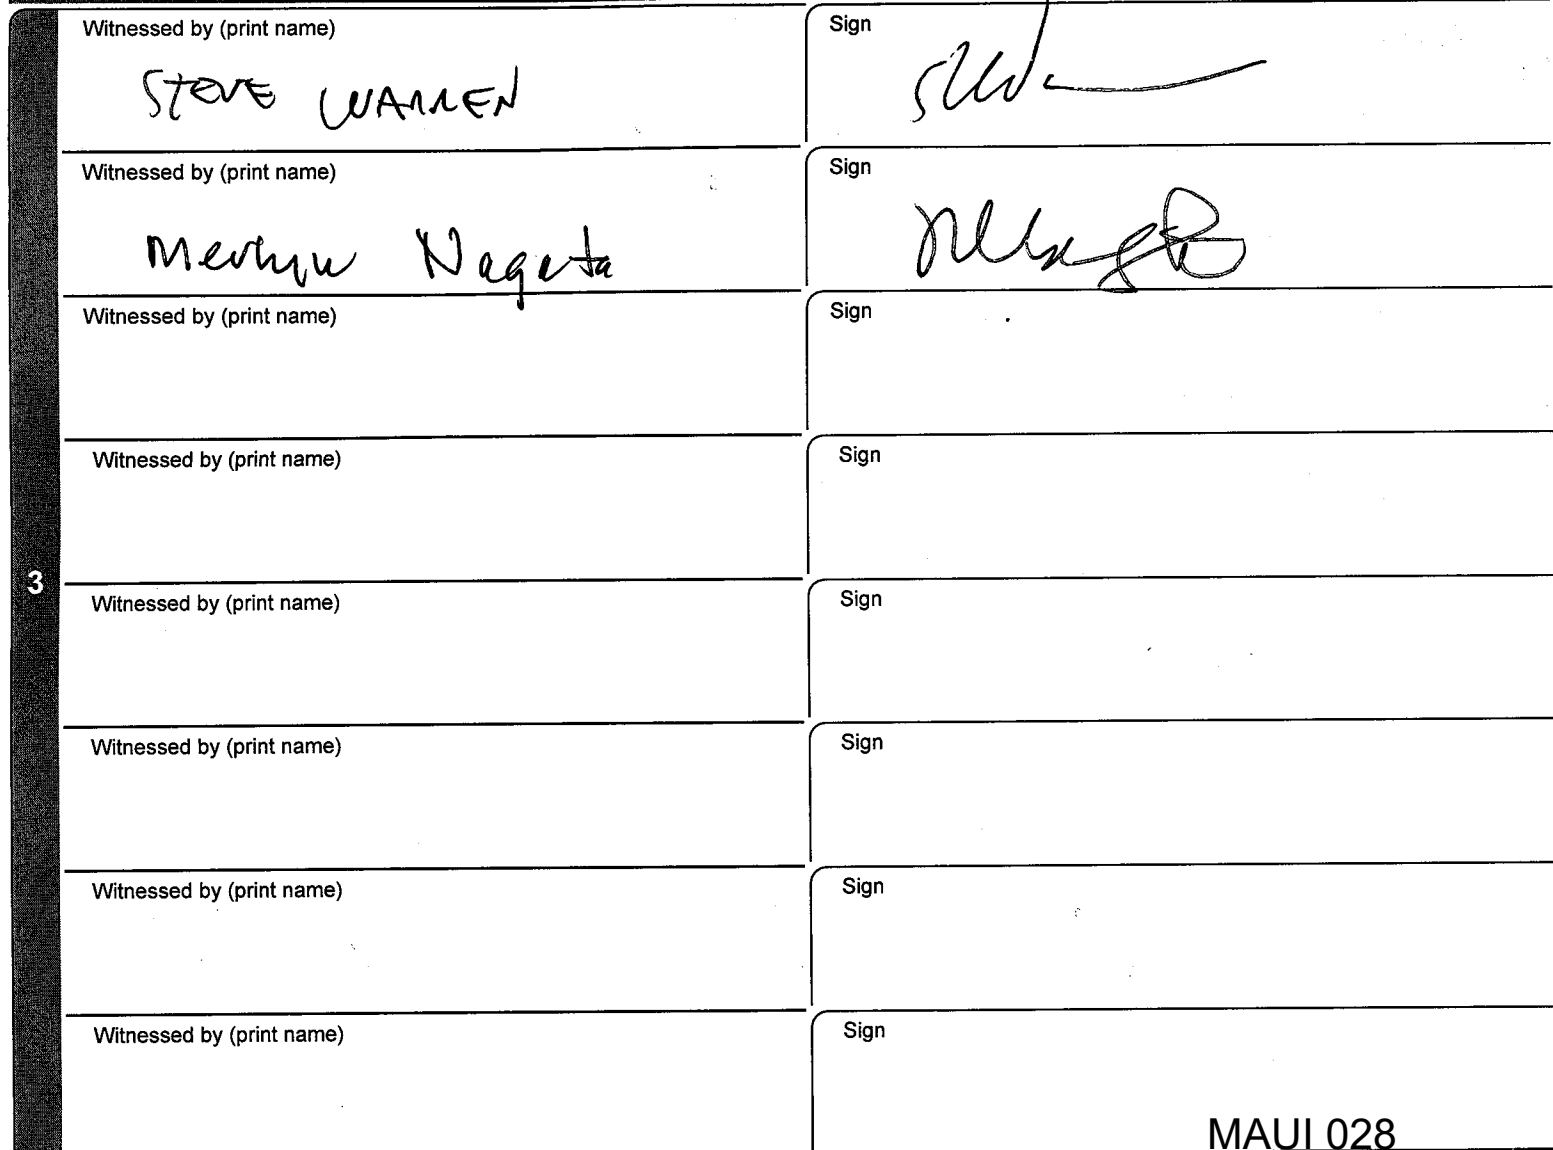 Witnessed by (print name) Sign
STEVE WARREN
Witnessed by (print name) Sign
Merlyn Nagata
Witnessed by (print name) Sign
Witnessed by (print name) Sign
3
Witnessed by (print name) Sign
Witnessed by (print name) Sign
Witnessed by (print name) Sign
Witnessed by (print name) Sign
MAUI 028